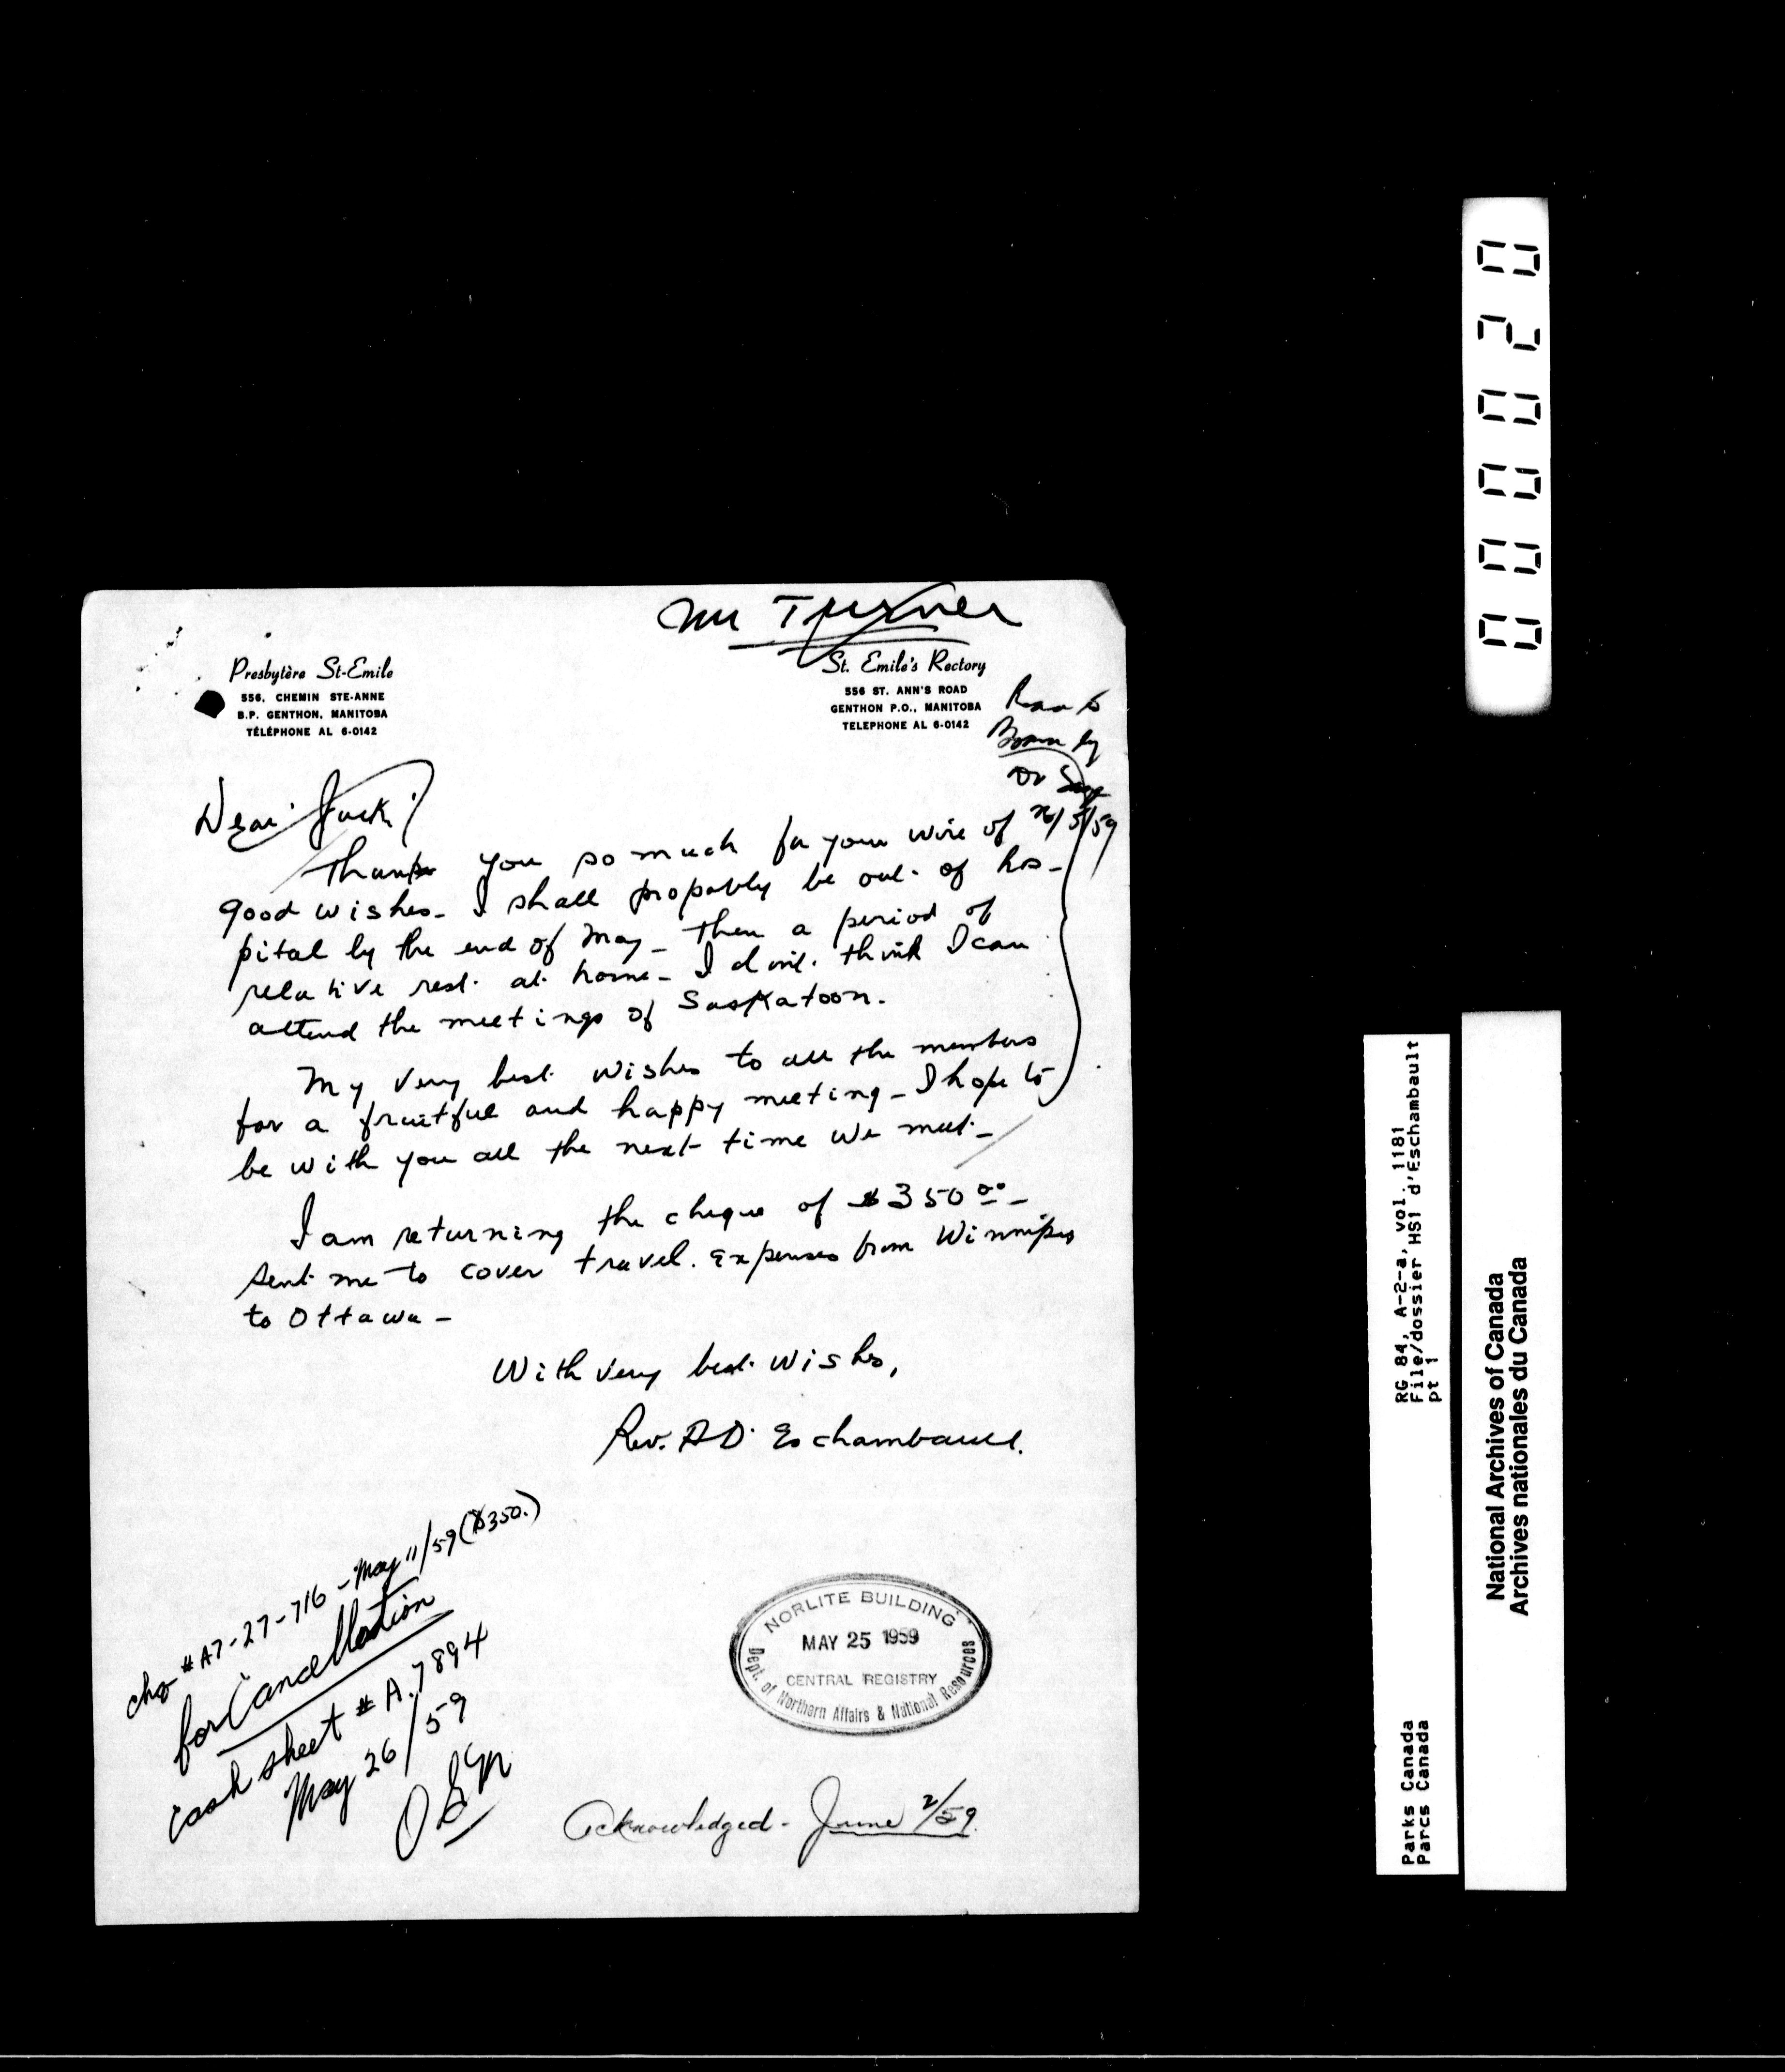 Mr Turner
Presbytère St-Emile
556, CHEMIN STE-ANNE
B.P. GENTHON, MANITOBA
TÉLÉPHONE AL 6-0142
St. Emile's Rectory
556 ST. ANN'S ROAD
GENTHON P.O., MANITOBA
TELEPHONE AL 6-0142
Read to
by
Dr
26/5/59
Dear Jack:
Thank you so much for your wire of
good wishes - I shall propably be out of hos-
pital by the end of May - Then a period of
relative rest at home - I don't think I can
attend the meetings of Saskatoon.
My very best wishes to all the members
for a fruitful and happy meeting - I hope to
be with you all the next time we meet -
I am returning the cheque of $350 00 -
sent me to cover travel. expenses from Winnipeg
to Ottawa -
With very best wishes,
Rev. A D' Eschambault.
chq # A7-27-716 - May 11/59 ($350.)
for Cancellation
cash sheet # A.7894
May 26/59
NORLITE BUILDING
MAY 25 1959
CENTRAL REGISTRY
Dept. of Northern Affairs & National Resources
Acknowledged - June 2/59.
000020
RG 84, A-2-a, vol. 1181
File/dossier HS1 d'Eschambault
pt 1
Parks Canada
Parcs Canada
National Archives of Canada
Archives nationales du Canada